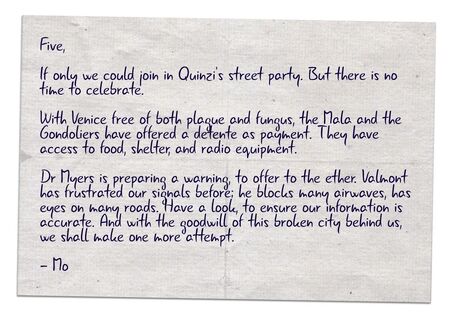 Five,
If only we could join in Quinzi's street party. But there is no
time to celebrate.
With Venice free of both plague and fungus, the Mala and the
Gondoliers have offered a detente as payment. They have
access to food, shelter, and radio equipment.
Dr Myers is preparing a warning, to offer to the ether. Valmont
has frustrated our signals before: he blocks many airwaves, has
eyes on many roads. Have a look, to ensure our information is
accurate. And with the goodwill of this broken city behind us,
we shall make one more attempt.
- Mo